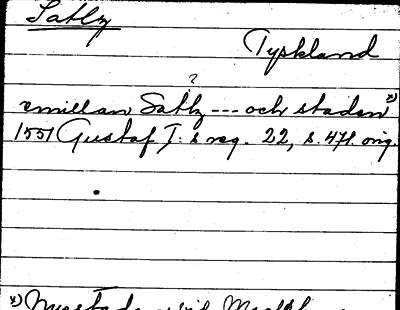 Satlz
Tyskland
?
emillan Satlz --- och staden x)
1551 Gustaf I:s reg. 22, s. 471. orig.
x)